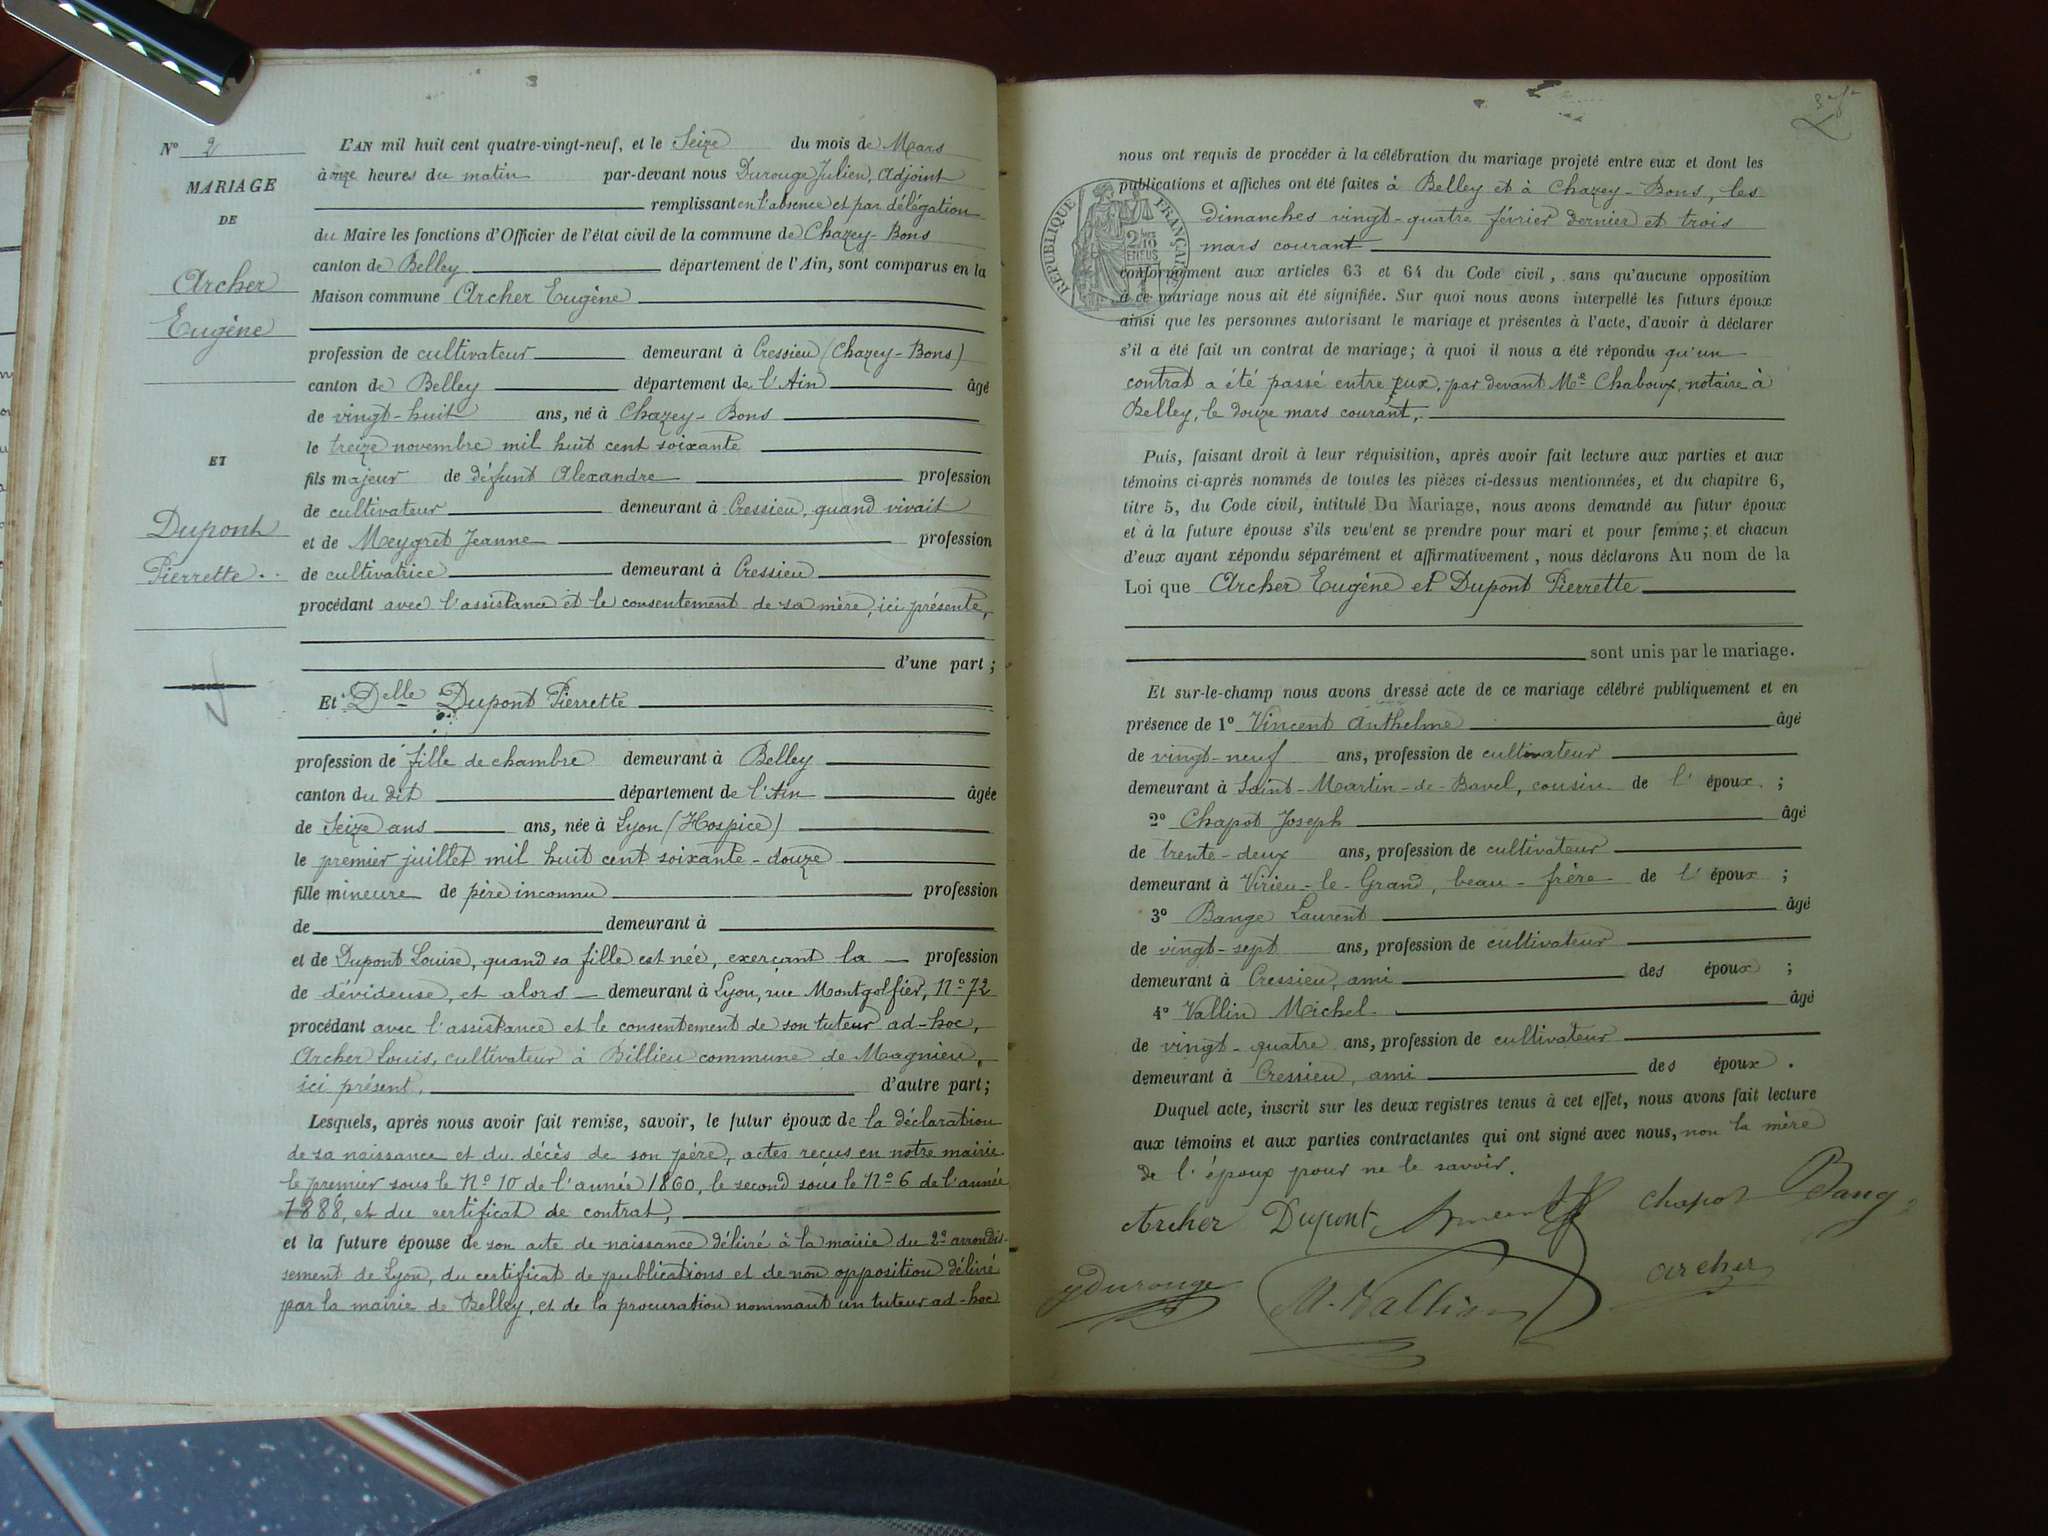 N° 2
MARIAGE
DE
Archer
Eugène
ET
Dupont
Pierrette
L'AN mil huit cent quatre-vingt-neuf, et le Seize du mois de Mars
à onze heures du matin par-devant nous Durouge Julien, Adjoint
remplissant en l'absence et par délégation
du Maire les fonctions d'Officier de l'état civil de la commune de Chazey-Bons
canton de Belley département de l'Ain, sont comparus en la
Maison commune Archer Eugène
profession de cultivateur demeurant à Cressieu (Chazey-Bons)
canton de Belley département de l'Ain âgé
de vingt-huit ans, né à Chazey-Bons
le treize novembre mil huit cent soixante
fils majeur de défunt Alexandre profession
de cultivateur demeurant à Cressieu, quand vivait
et de Meygret Jeanne profession
de cultivatrice demeurant à Cressieu
procédant avec l'assistance et le consentement de sa mère, ici présente,
d'une part ;
Et Delle Dupont Pierrette
profession de fille de chambre demeurant à Belley
canton du dit département de l'Ain âgée
de Seize ans ans, née à Lyon (Hospice)
le premier juillet mil huit cent soixante-douze
fille mineure de père inconnu profession
de demeurant à
et de Dupont Louise, quand sa fille est née, exerçant la profession
de dévideuse, et alors demeurant à Lyon, rue Montgolfier, N° 72
procédant avec l'assistance et le consentement de son tuteur ad-hoc,
Archer Louis, cultivateur à Billieu commune de Magnieu,
ici présent, d'autre part ;
Lesquels, après nous avoir fait remise, savoir, le futur époux de la déclaration
de sa naissance et du décès de son père, actes reçus en notre mairie
le premier sous le N° 10 de l'année 1860, le second sous le N° 6 de l'année
1888, et du certificat de contrat,
et la future épouse de son acte de naissance délivré à la mairie du 2e arrondis-
sement de Lyon, du certificat de publications et de non opposition délivré
par la mairie de Belley, et de la procuration nommant un tuteur ad-hoc
nous ont requis de procéder à la célébration du mariage projeté entre eux et dont les
publications et affiches ont été faites à Belley et à Chazey-Bons, les
dimanches vingt-quatre février dernier et trois
mars courant
RÉPUBLIQUE FRANÇAISE
2/10
EN SUS
conformément aux articles 63 et 64 du Code civil, sans qu'aucune opposition
à ce mariage nous ait été signifiée. Sur quoi nous avons interpellé les futurs époux
ainsi que les personnes autorisant le mariage et présentes à l'acte, d'avoir à déclarer
s'il a été fait un contrat de mariage ; à quoi il nous a été répondu qu'un
contrat a été passé entre eux, par devant Me Chaboux, notaire à
Belley, le douze mars courant,
Puis, faisant droit à leur réquisition, après avoir fait lecture aux parties et aux
témoins ci-après nommés de toutes les pièces ci-dessus mentionnées, et du chapitre 6,
titre 5, du Code civil, intitulé Du Mariage, nous avons demandé au futur époux
et à la future épouse s'ils veulent se prendre pour mari et pour femme ; et chacun
d'eux ayant répondu séparément et affirmativement, nous déclarons Au nom de la
Loi que Archer Eugène et Dupont Pierrette
sont unis par le mariage.
Et sur-le-champ nous avons dressé acte de ce mariage célébré publiquement et en
présence de 1° Vincent Anthelme âgé
de vingt-neuf ans, profession de cultivateur
demeurant à Saint-Martin-de-Bavel, cousin de l'époux ;
2° Chapot Joseph âgé
de trente-deux ans, profession de cultivateur
demeurant à Virieu-le-Grand, beau-frère de l'époux ;
3° Bange Laurent âgé
de vingt-sept ans, profession de cultivateur
demeurant à Cressieu, ami des époux ;
4° Vallin Michel âgé
de vingt-quatre ans, profession de cultivateur
demeurant à Cressieu, ami des époux.
Duquel acte, inscrit sur les deux registres tenus à cet effet, nous avons fait lecture
aux témoins et aux parties contractantes qui ont signé avec nous, non la mère
de l'époux pour ne le savoir.
Archer Dupont Vincent Chapot Bange
JDurouge M. Vallin archer